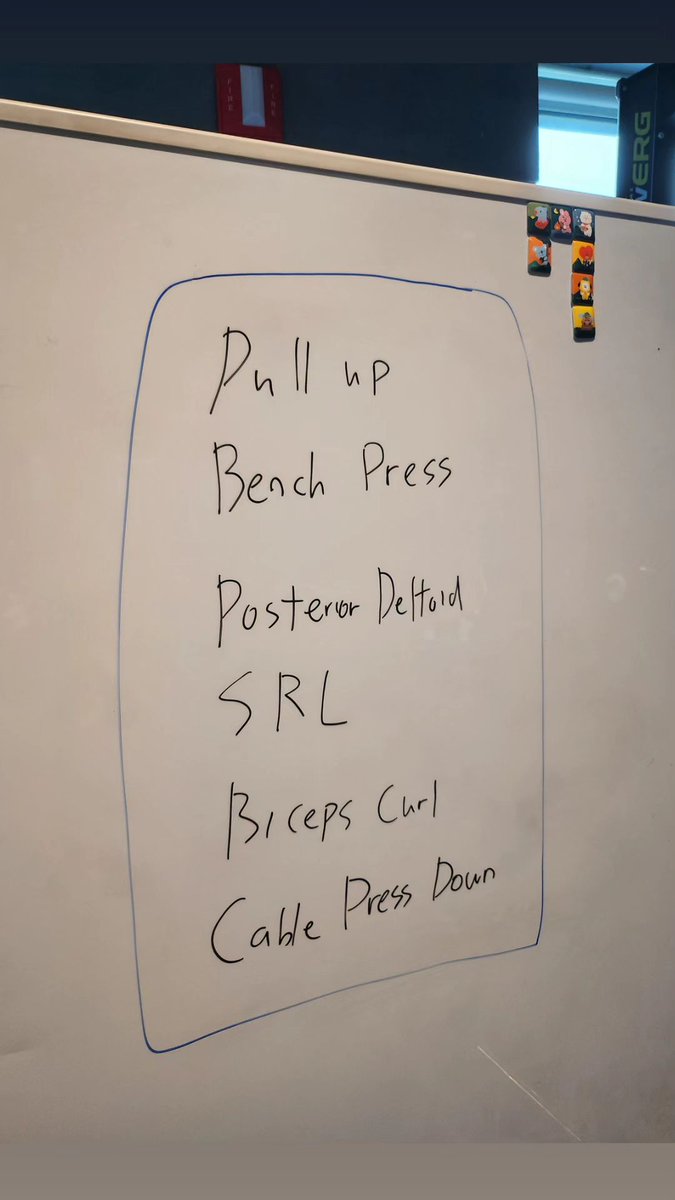 FIRE FIRE
WERG
Pull up
Bench Press
Posterior Deltoid
SRL
Biceps Curl
Cable Press Down